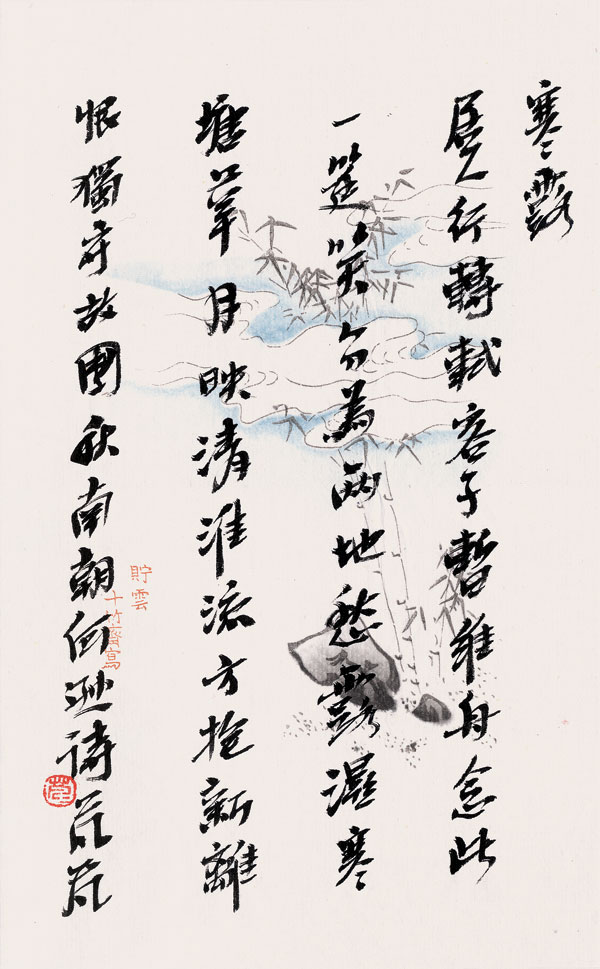 寒露
居人行轉軾客子暫維舟念此
一筵笑分為兩地愁露濕寒
塘草月映清淮流方抱新離
恨獨守故園秋南朝何遜詩
貯雲
十竹齋寫